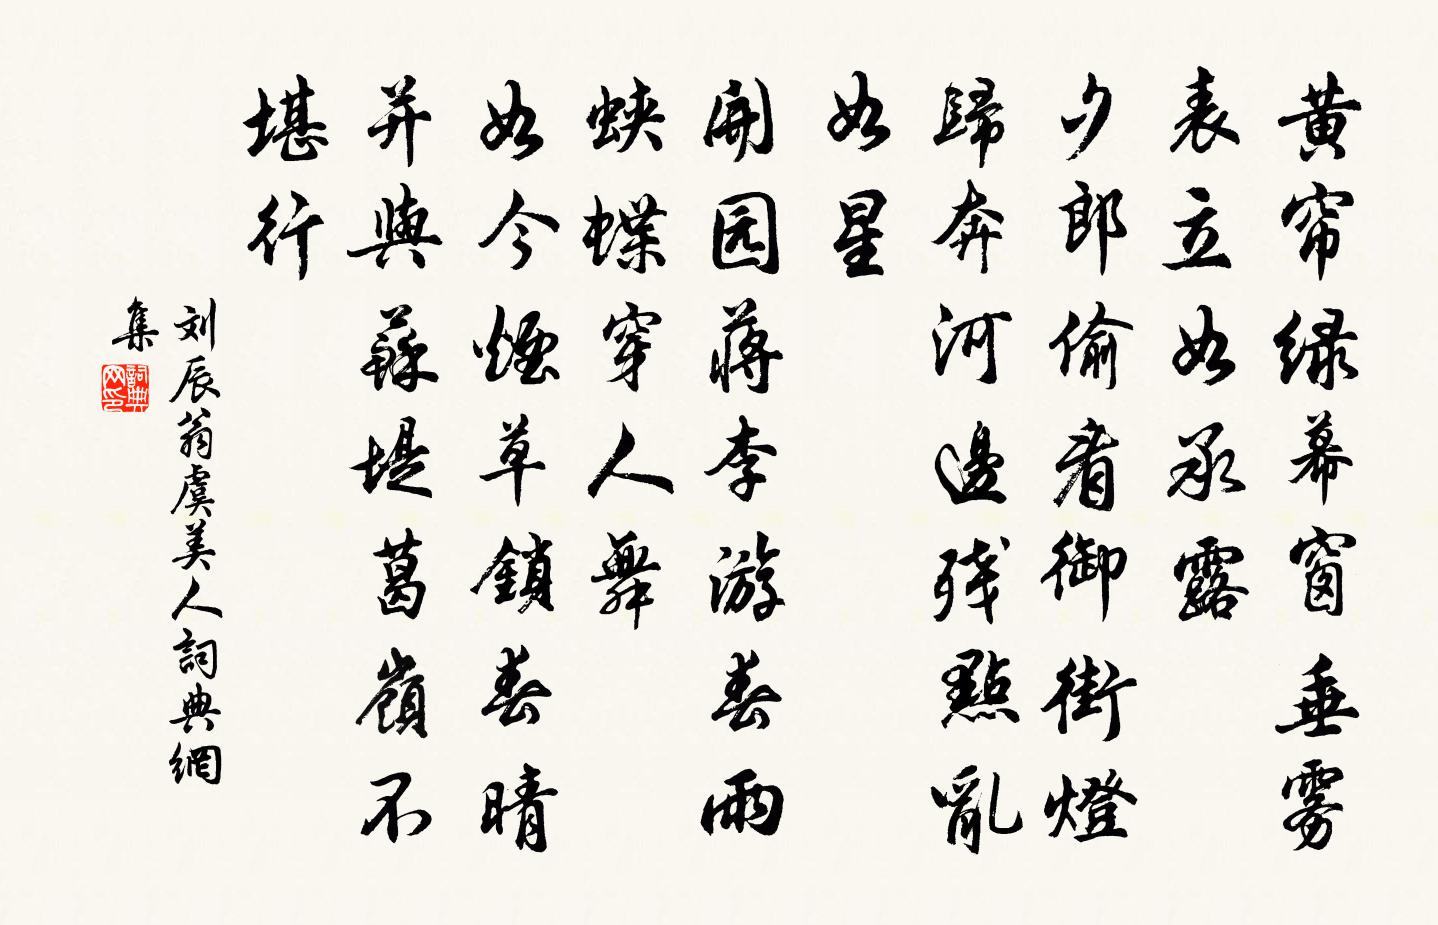 黄帘绿幕窗垂雾
表立如承露
夕郎偷看御街燈
歸奔河邊残點亂
如星
開园蒋李游春雨
蛺蝶穿人舞
如今煙草鎖春晴
并與蘇堤葛嶺不
堪行
刘辰翁虞美人詞典網
集
詞典网印